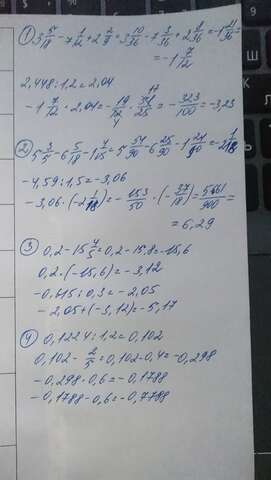 ① 3 5/18 - 7 1/12 + 2 2/9 = 3 10/36 - 7 3/36 + 2 8/36 = -1 21/36 =
= -1 7/12
2,448 : 1,2 = 2,04
-1 7/12 · 2,04 = -19/12 · 51/25 = -323/100 = -3,23
② 5 3/5 - 6 5/18 - 1 7/15 = 5 54/90 - 6 25/90 - 1 = -2 1/18
-4,59 : 1,5 = -3,06
-3,06 · (-2 1/18) = -153/50 · (-37/18) = 5661/900 =
= 6,29
③ 0,2 - 15 4/5 = 0,2 - 15,8 = -15,6
0,2 · (-15,6) = -3,12
-0,615 : 0,3 = -2,05
-2,05 + (-3,12) = -5,17
④ 0,1224 : 1,2 = 0,102
0,102 - 2/5 = 0,102 - 0,4 = -0,298
-0,298 · 0,6 = -0,1788
-0,1788 - 0,6 = -0,7788